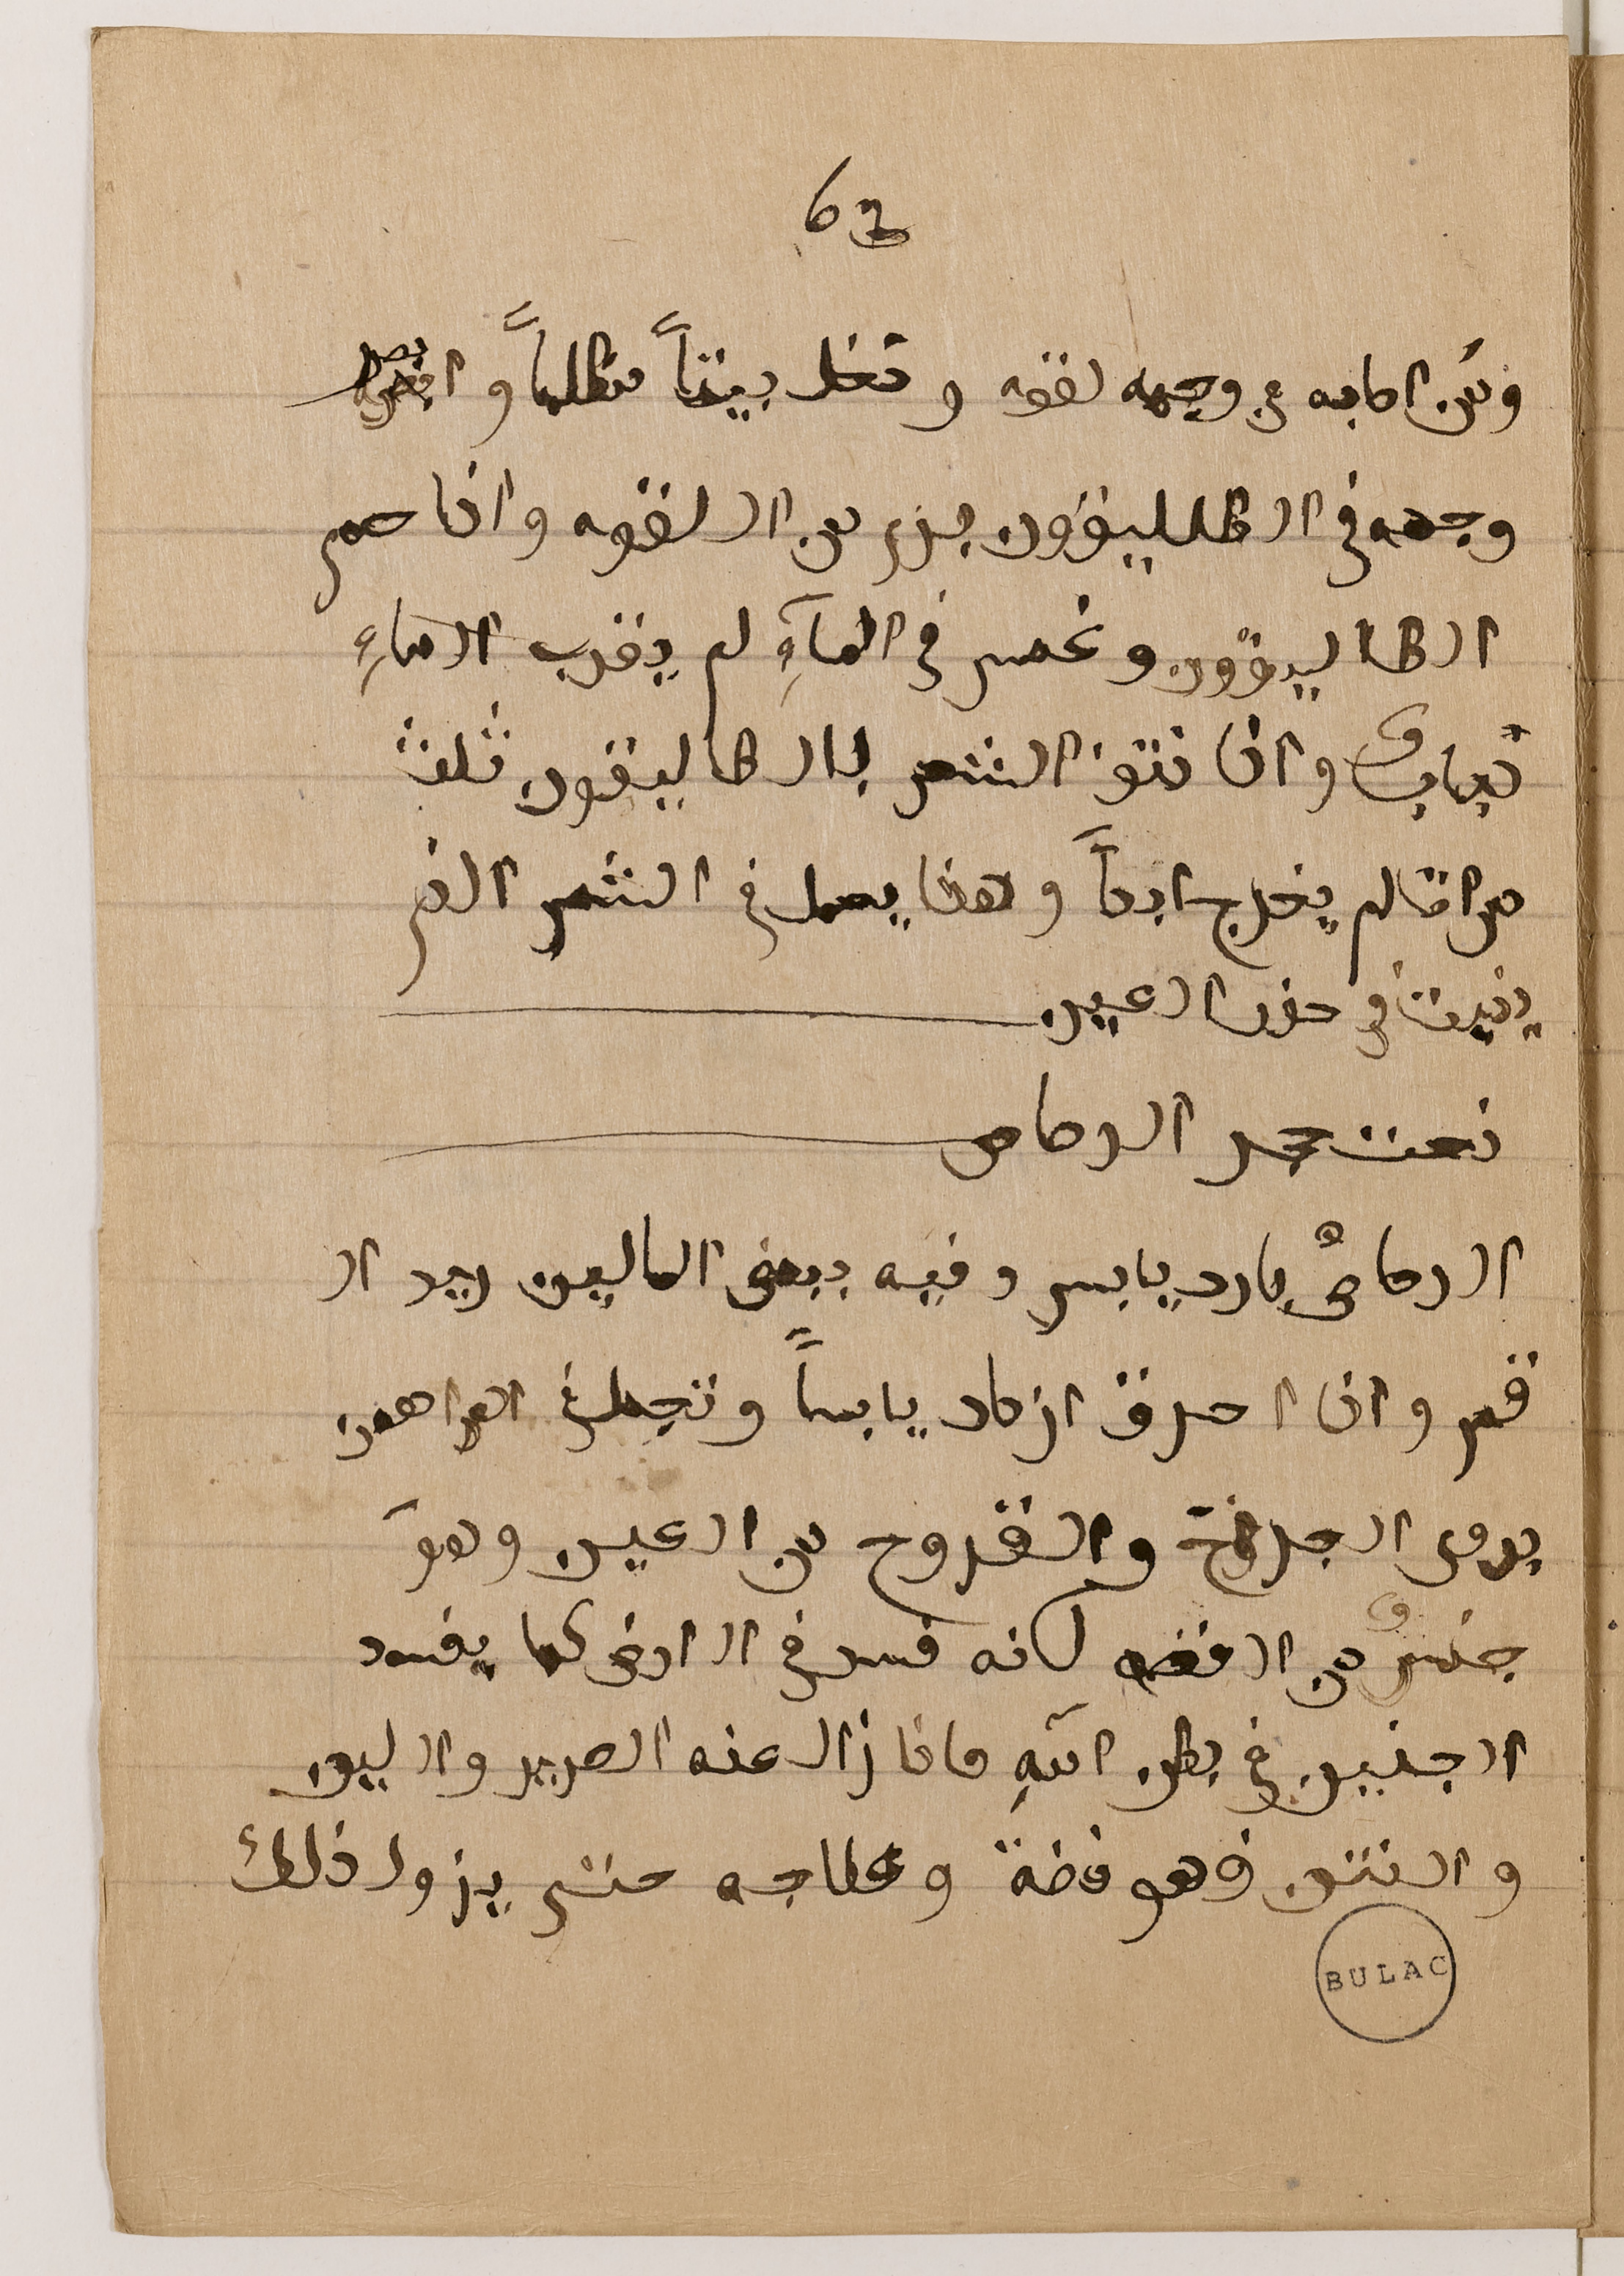 62
ومن اصابه في وجهه لقوه ودخل بيتاً مظلماً و
وجهه في الطاليقون برى من اللقوه واذا حمي
الطاليقون وغمس في المآءِ لم يقرب الماءِ
ذبابٌ واذا نتف الشعر بالطاليقون ثلث
مرات لم يخرج ابداً وهذا يعمل في الشعر الذي
ينبت في جفن العين
نعت حجر الرصاص
الرصاصُ بارد يابس وفيه بعض اللين
واذا احرق ازداد يابساً وتجعل في المراهم
يبري الجراح والقروح من العين وهو
جنسٌ من الفضه لكنه فسد في الارض كما يفسد
الجنين في بطن امّهِ فاذا زال عنه الصرير واللين
والنتن فهو فضة وعلاجه حتى يزول ذلك
BULAC